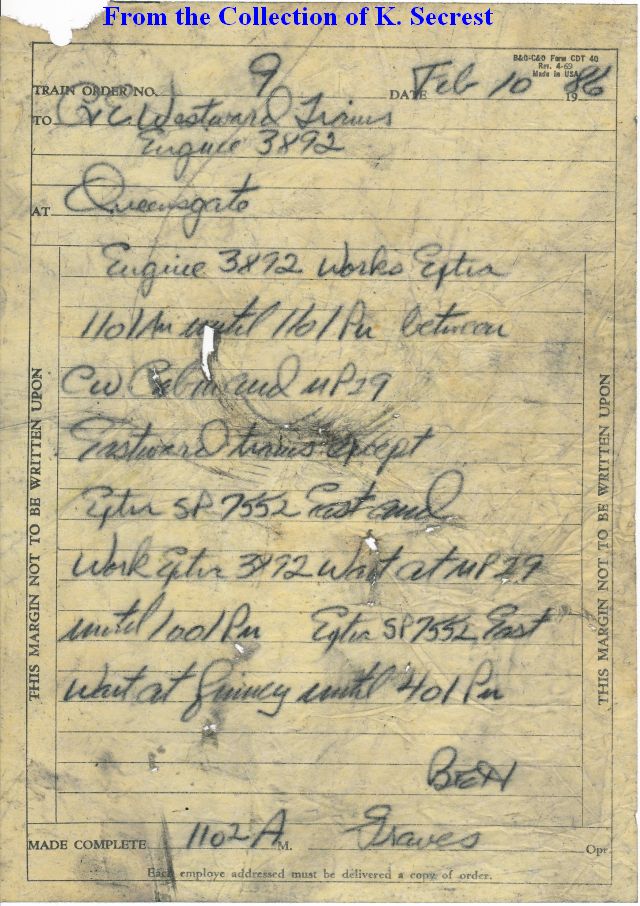 From the Collection of K. Secrest
B&O-C&O Form CDT 40
Rev. 4-69
Made in USA
TRAIN ORDER NO. 9 DATE Feb 10 1986
TO C&E Westward Trains
Engine 3892
AT Queensgate
Engine 3892 Works Extra
1101 Am until 1101 Pm between
CW Cabin and MP 29
Eastward trains except
Extra SP 7552 East and
Work Extra 3892 Wait at MP 29
until 1001 Pm Extra SP 7552 East
Wait at Quincy until 401 Pm
BEH
MADE COMPLETE 1102 A M. Graves Opr.
Each employe addressed must be delivered a copy of order.
THIS MARGIN NOT TO BE WRITTEN UPON
THIS MARGIN NOT TO BE WRITTEN UPON